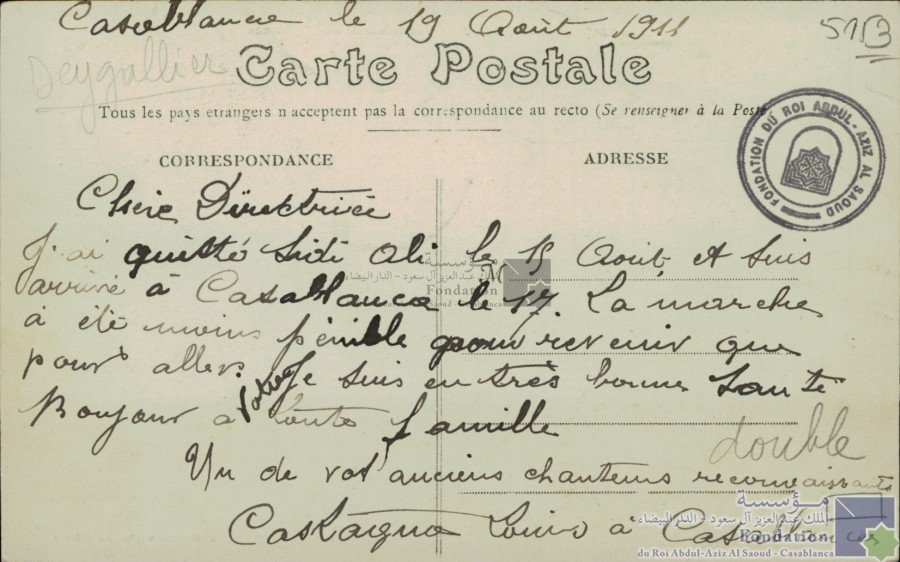 Casablanca le 19 Août 1911
51B
Deygallier
Carte Postale
Tous les pays étrangers n'acceptent pas la correspondance au recto (Se renseigner à la Poste
CORRESPONDANCE
ADRESSE
FONDATION DU ROI ABDUL-AZIZ AL SAOUD
Chère Directrice
J'ai quitté Sidi Ali le 15 Août et suis
arrivé à Casablanca le 17. La marche
a été moins pénible pour revenir que
pour aller. Je suis en très bonne santé
Bonjour à votre toute famille
double
Un de vos anciens chanteurs reconnaissants
Castaigna Louis à Casablanca
مؤسسة
الملك عبد العزيز آل سعود - الدار البيضاء
Fondation
du Roi Abdul-Aziz Al Saoud - Casablanca
مؤسسة
الملك عبد العزيز آل سعود - الدار البيضاء
Fondation
du Roi Abdul-Aziz Al Saoud - Casablanca